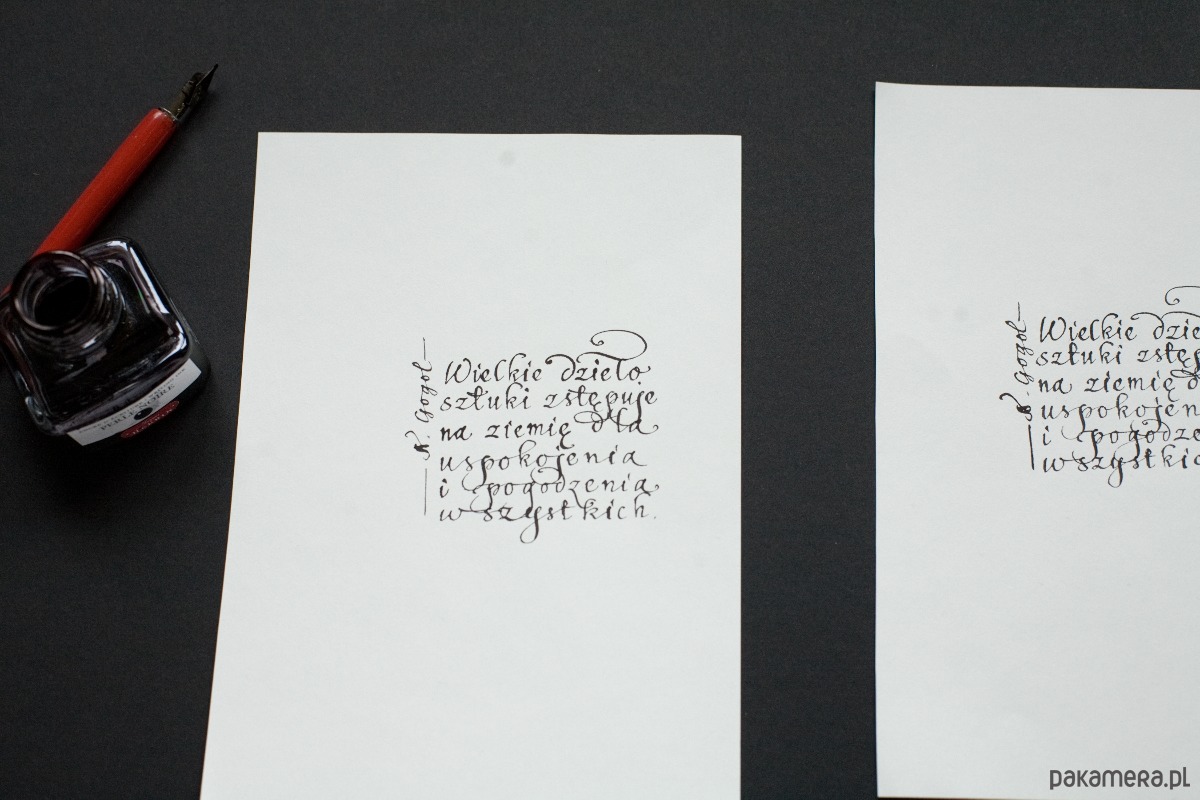 N. Gogol
Wielkie dzieło
sztuki zstępuje
na ziemię dla
uspokojenia
i pogodzenia
wszystkich.
N. Gogol
Wielkie
sztuki
na ziemię
i
PERLE NOIRE
J. HERBIN
pakamera.pl